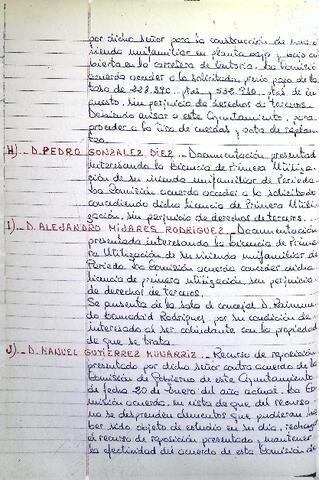 por dicho Señor para la construcción de una vi
vienda unifamiliar en planta baja y bajo cu
bierta en la carretera de Cantoria. La Comisión
acuerda acceder a lo solicitado, previo pago de la
tasa de 222.890 ptas y 532.930 ptas de im
puesto, sin perjuicio de derechos de terceros.
Deberán avisar a este Ayuntamiento, para
proceder a la tira de cuerdas y acta de replan
teo.
H) _ D. PEDRO GONZALEZ DÍEZ _ Documentación presentada
interesando la licencia de Primera Utiliza-
ción de su vivienda unifamiliar de Periedo.
La Comisión acuerda acceder a lo solicitado
concediendo dicha licencia de Primera Utili-
zación, sin perjuicio de derechos de terceros.
I) _ D. ALEJANDRO MIJARES RODRIGUEZ _ Documentación
presentada interesando la licencia de Prime
ra Utilización de su vivienda unifamiliar de
Periedo. La Comisión acuerda conceder dicha
licencia de primera utilización, sin perjuicio
de derechos de terceros.
Se ausenta de la sala el concejal D. Raimun
do Camadrid Rodríguez, por su condición de
interesado al ser colindante con la propiedad
de que se trata.
J) _ D. MANUEL GUTIERREZ MUNARRIZ _ Recurso de reposición
presentado por dicho señor contra acuerdo de la
Comisión de Gobierno de este Ayuntamiento
de fecha 20 de Enero del año actual. La Co
misión acuerda, en vista de que del recurso
no se desprenden elementos que pudieran ha
ber sido objeto de estudio en su día, rechazar
el recurso de reposición presentado y mantener
la efectividad del acuerdo de esta Comisión de